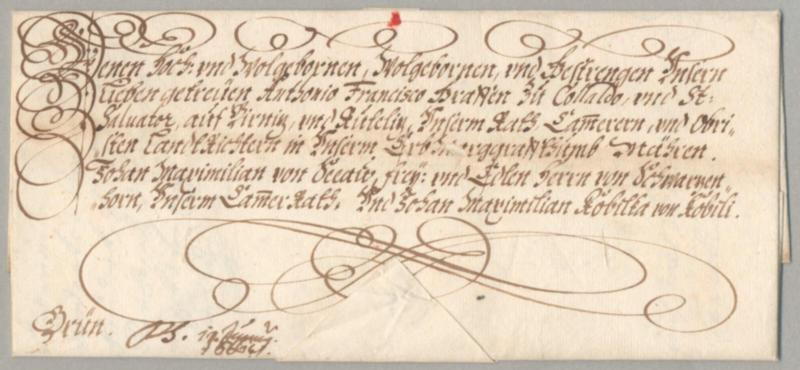 Denen Hoch: und Wolgebornen, Wolgebornen, und Gestrengen Unsern
Lieben getreuen Antonio Francisco Graffen zu Collalto, und St:
Salvator, auf Pirnitz, und Rutolitz, Unserm Rath, Cammerern, und Obri„
„sten LandtRichtern in Unserm Erb Marggraffthumb Mähren.
Johan Maximilian von Seeau, Frey: und Edlen Herrn von Schwarzen„
„horn, Unserm CammerRath. Und Johan Maximilian Kobilka von Kobili.
Brün.